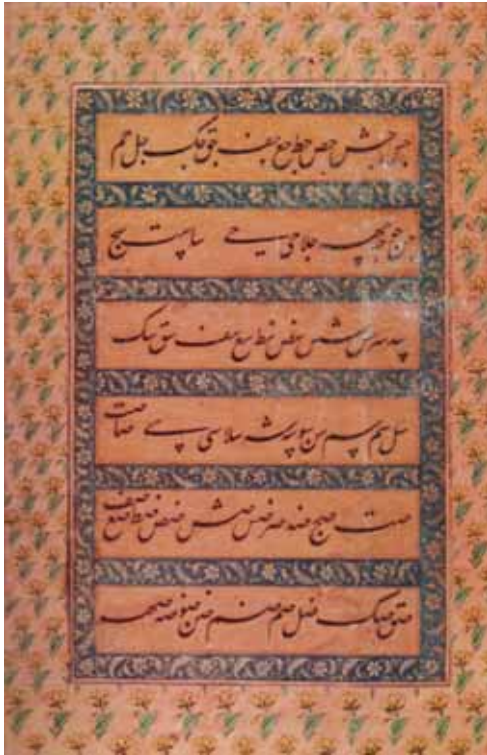 جش جص جط جع جف جق جک جل جم
جن جو جه جهر جلا جی جے سا سب سج
سد سر سس سش سص سط سع سف سق سک
سل سم سم سن سو سه سلا سی سے صا صت
صب صج صد صر صس صش صص صط صع صف
صق صک صل صم صم صن صو صه صهر